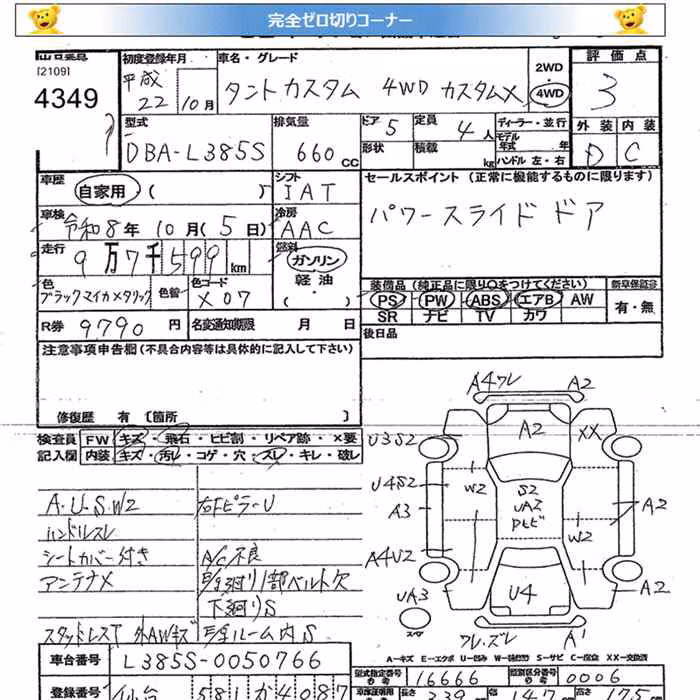 完全ゼロ切りコーナー
[2109]
4349
初度登録年月
平成
22年 10月
車名・グレード
タントカスタム 4WD カスタムX
2WD
4WD
評価点
3
外装 内装
D C
型式
DBA-L385S
排気量
660 CC
ドア 5
形状
定員 4人
積載 kg
ディーラー・並行
モデル年式 年
ハンドル 左・右
車歴
自家用 ( )
シフト
IAT
セールスポイント (正常に機能するものに限ります)
パワースライドドア
車検
令和8年 10月(5日)
冷房
AAC
走行
9万7千599km
燃料
ガソリン
軽油
( ・ )
色
ブラックマイカメタリック
色替
色コード
X07
装備品(純正品に限り○をつけてください)
PS PW ABS エアB AW
SR ナビ TV カワ
新車保証書
有・無
R券 9790円
名変通知期限 月 日
後日品
注意事項申告欄(不具合内容等は具体的に記入して下さい)
修復歴 有 〔箇所
検査員記入欄
FW キズ・飛石・ヒビ割・リペア跡・×要
内装 キズ・汚レ・コゲ・穴・スレ・キレ・破レ
A.U.S.W2
ハンドルスレ
シートカバー付き
アンテナ×
スタッドレスT 外AWキズ
右FピラーU
A/C不良
1部ベルト欠
下廻りS
ルーム内S
A4ワレ A2
A2 XX
U3S2
U4S2
A3
W2
S2
UA2
PLビ
W2
A2
A4U2
UA3
スペア
U4
A2
ワレ.ズレ A1
A-キズ E-エクボ U-凹み W-補修跡 S-サビ C-腐食 XX-交換済
車台番号 L385S-0050766
型式指定番号 16666
類別区分番号 0006
登録番号 仙台 581 か 4087
長さ 339
幅 147